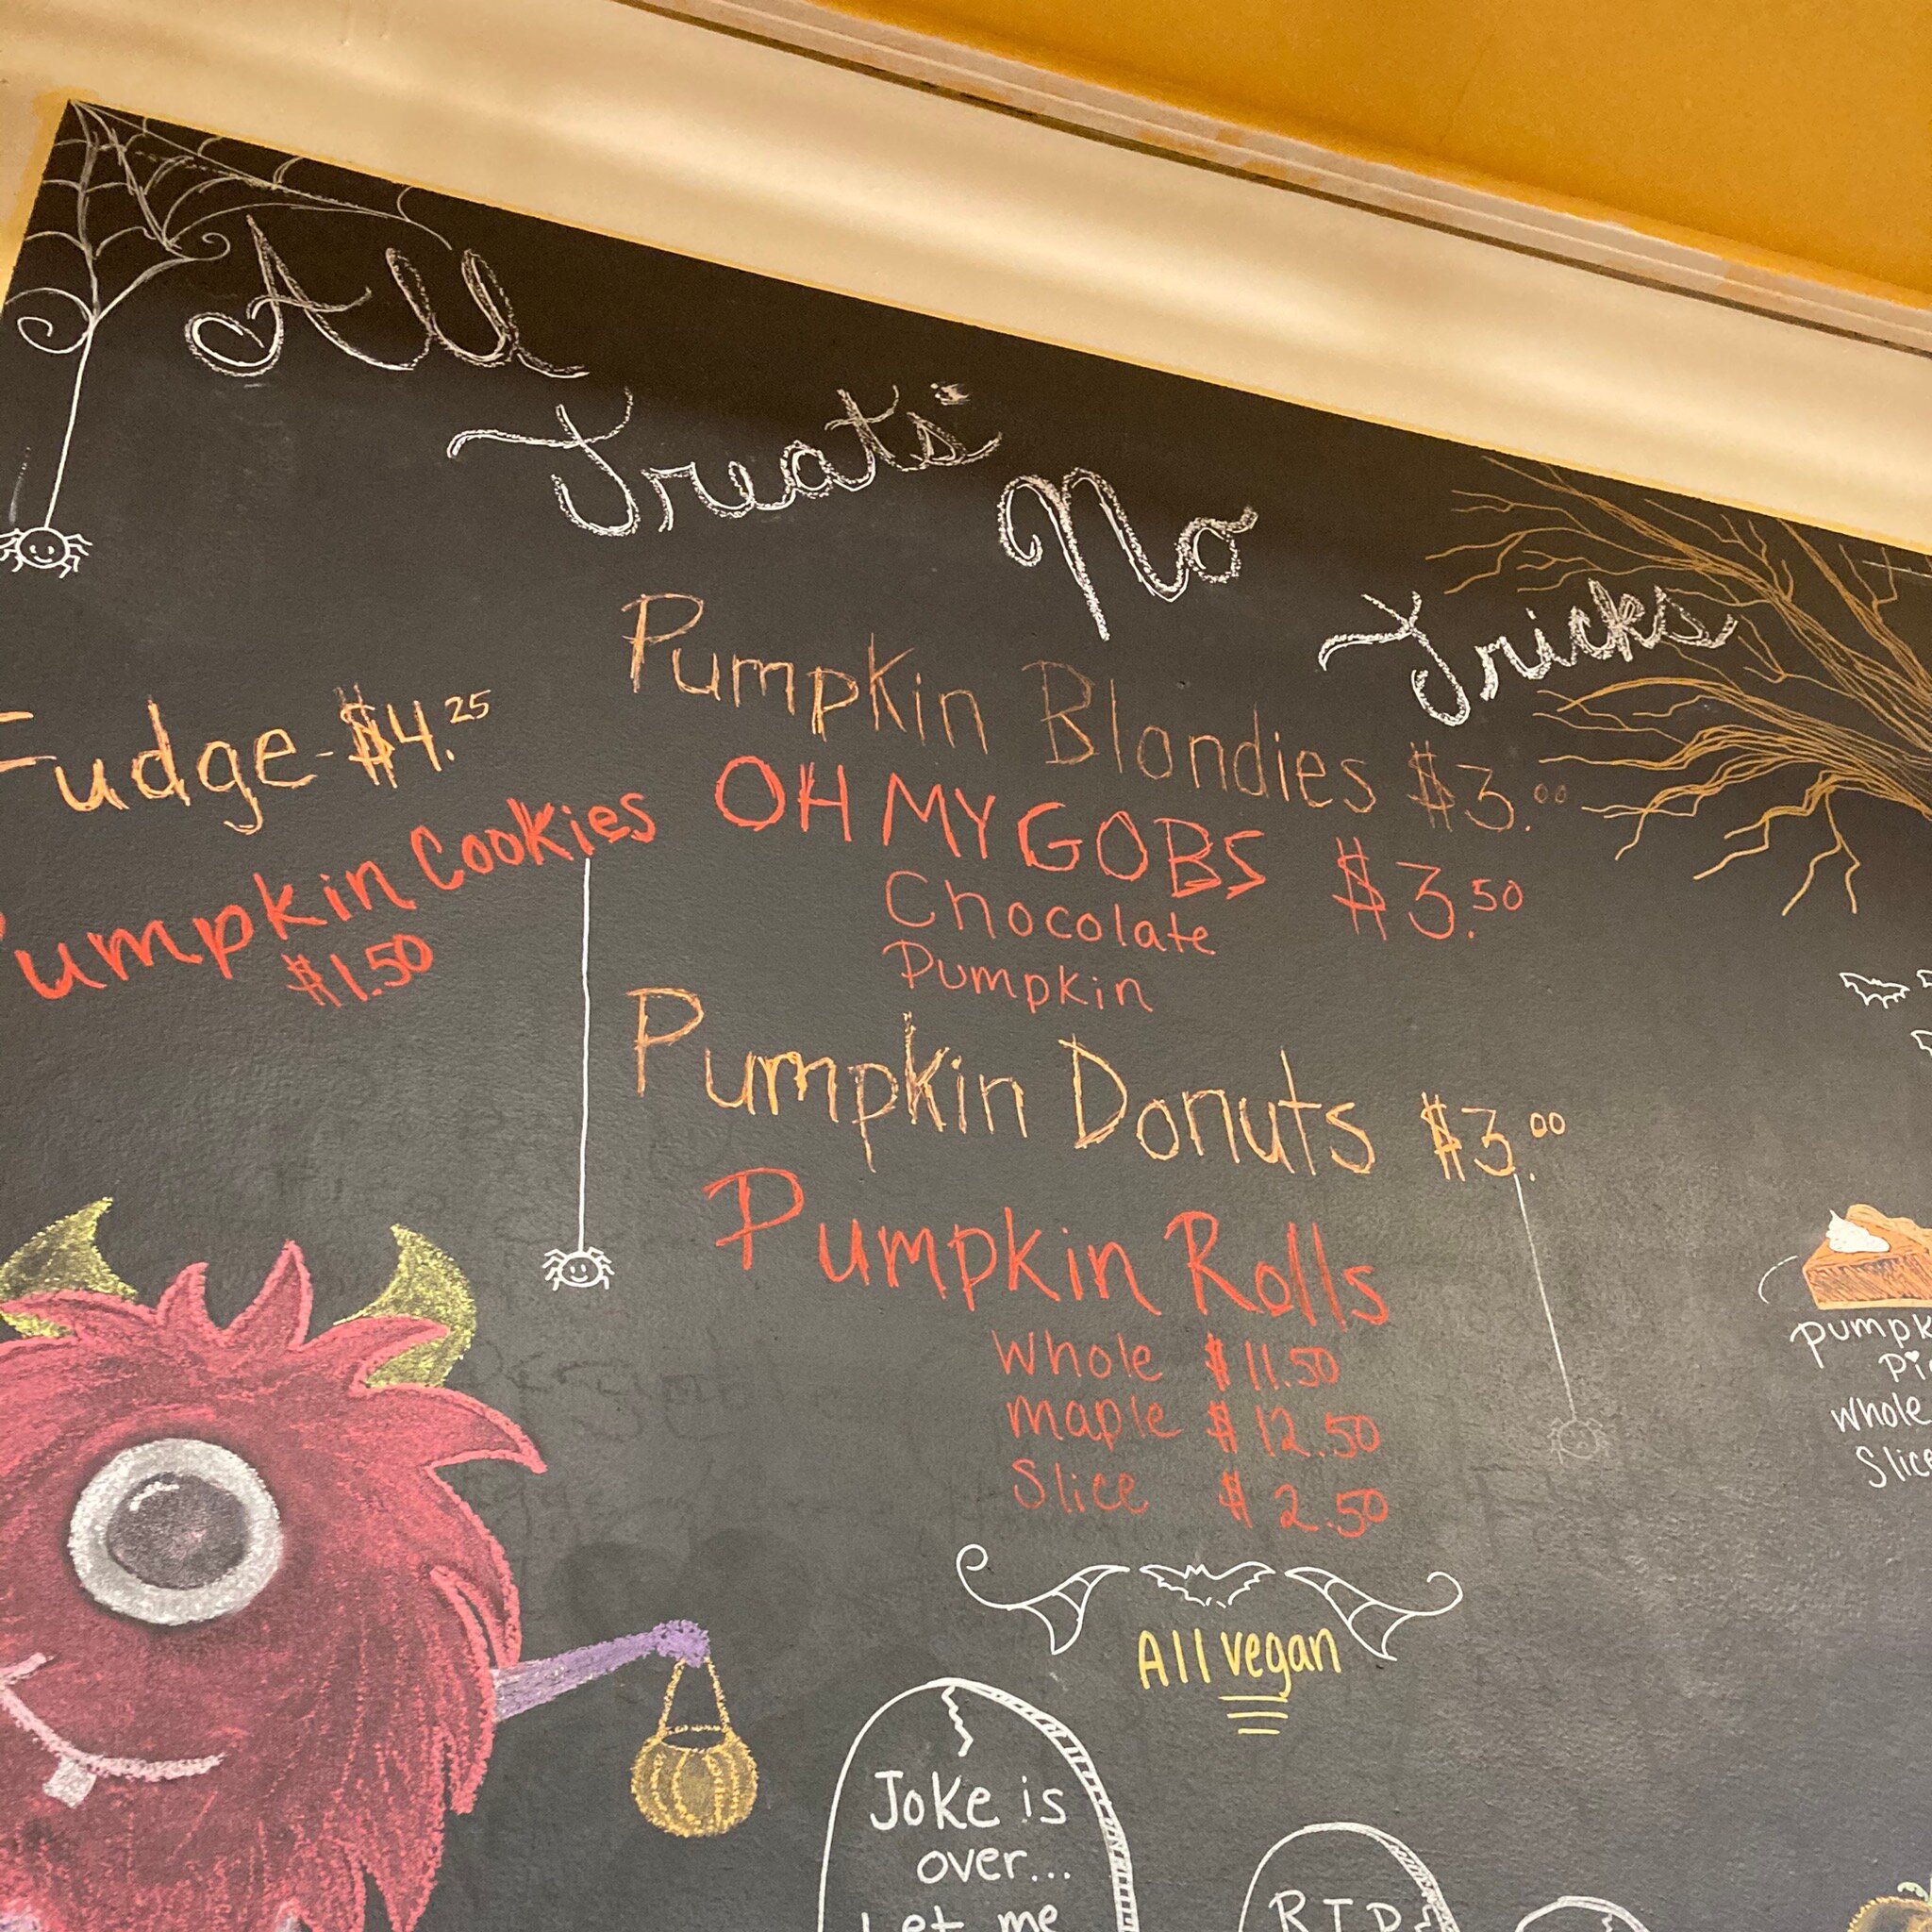 All
Treats
No
Tricks
Fudge - $4.25
Pumpkin Cookies
$1.50
Pumpkin Blondies $3.00
OH MY GOBS $3.50
Chocolate
Pumpkin
Pumpkin Donuts $3.00
Pumpkin Rolls
Whole $11.50
maple $12.50
Slice $2.50
All vegan
Pumpk
Pi
Whole
Slice
Joke is
over...
Let me
RIP